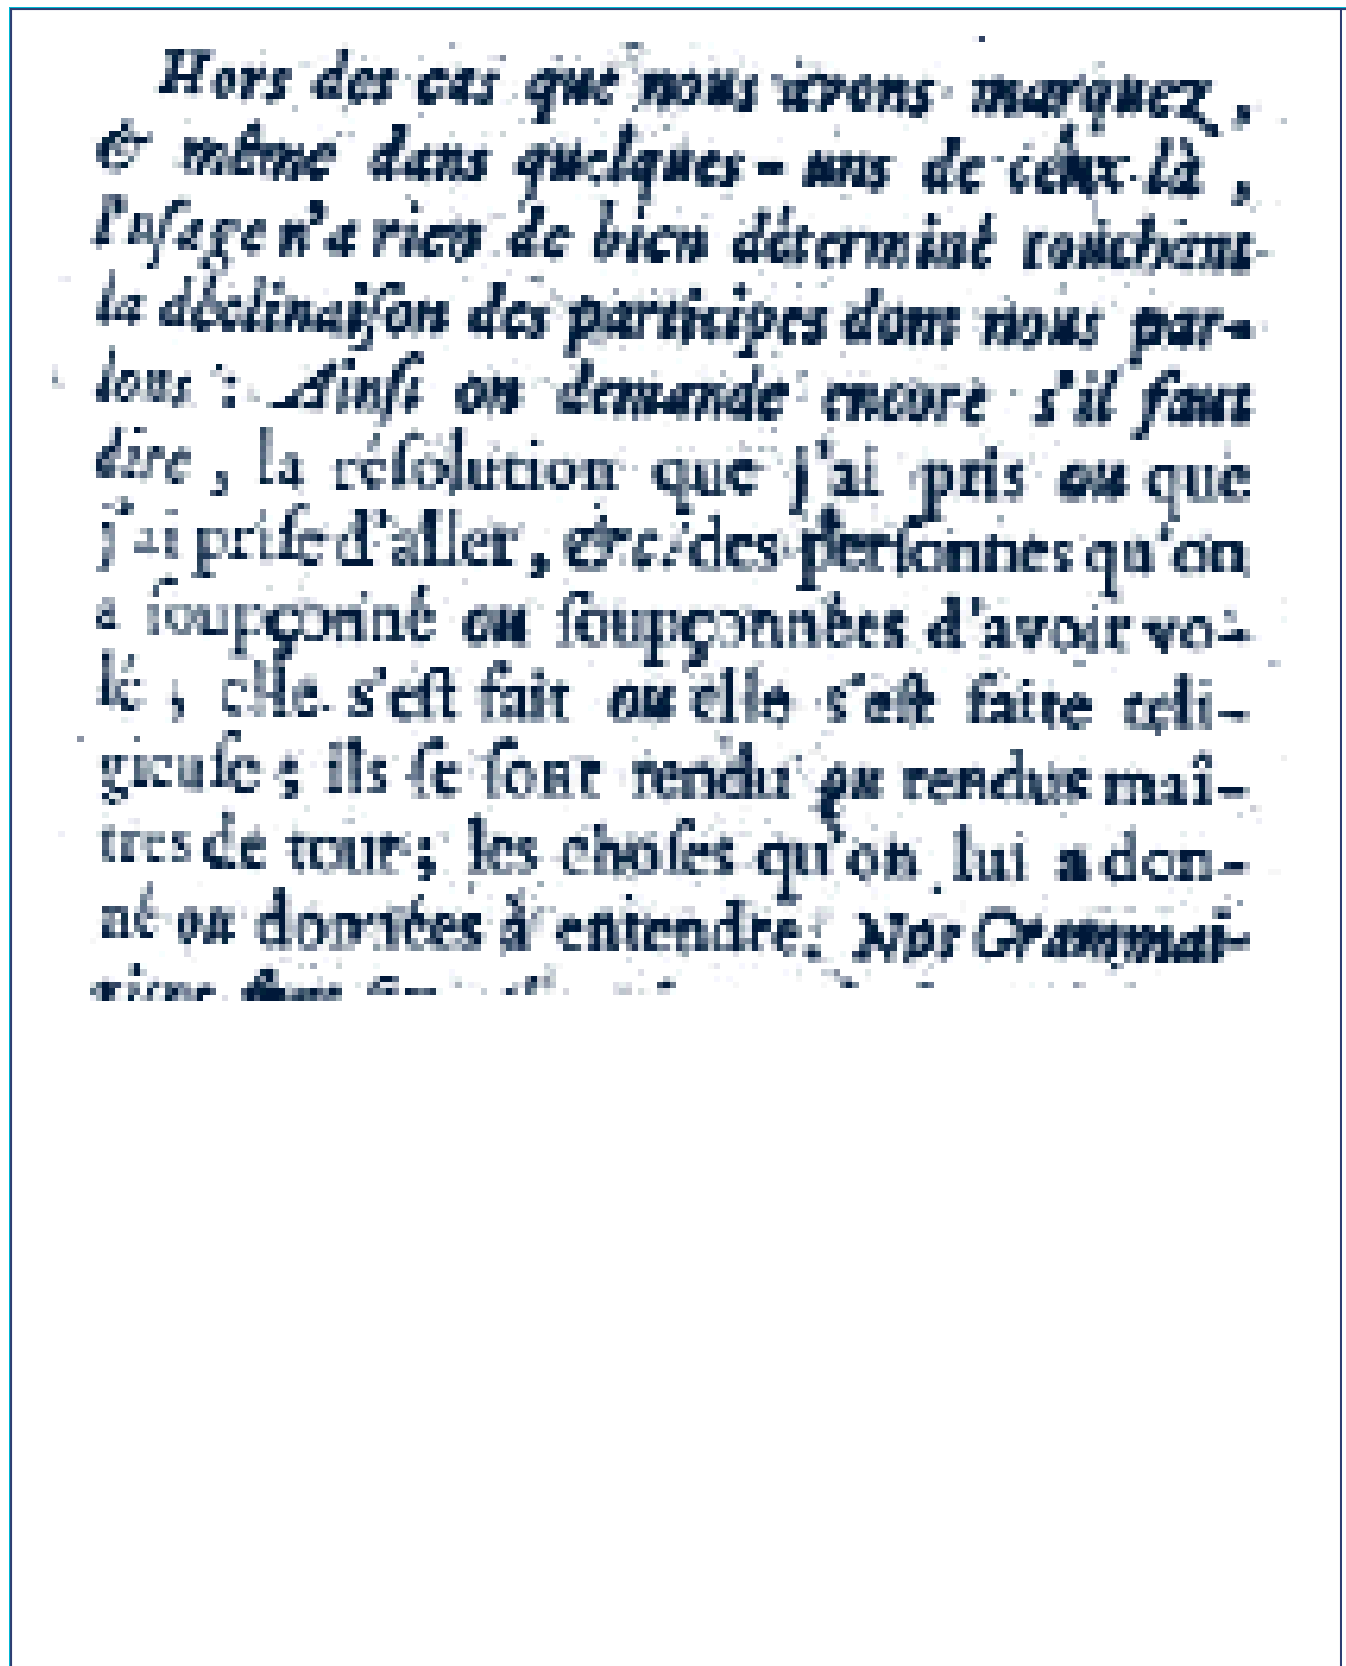 Hors des cas que nous avons marquez,
& même dans quelques-uns de ceux-là,
l'uſage n'a rien de bien déterminé touchant
la déclinaiſon des participes dont nous par-
lons : Ainſi on demande encore s'il faut
dire, la réſolution que j'ai pris ou que
j'ai priſe d'aller, &c. des perſonnes qu'on
a ſoupçonné ou ſoupçonnées d'avoir vo-
lé ; elle s'eſt fait ou elle s'eſt faite reli-
gieuſe ; ils ſe ſont rendu ou rendus maî-
tres de tout ; les choſes qu'on lui a don-
né ou données à entendre. Nos Grammai-